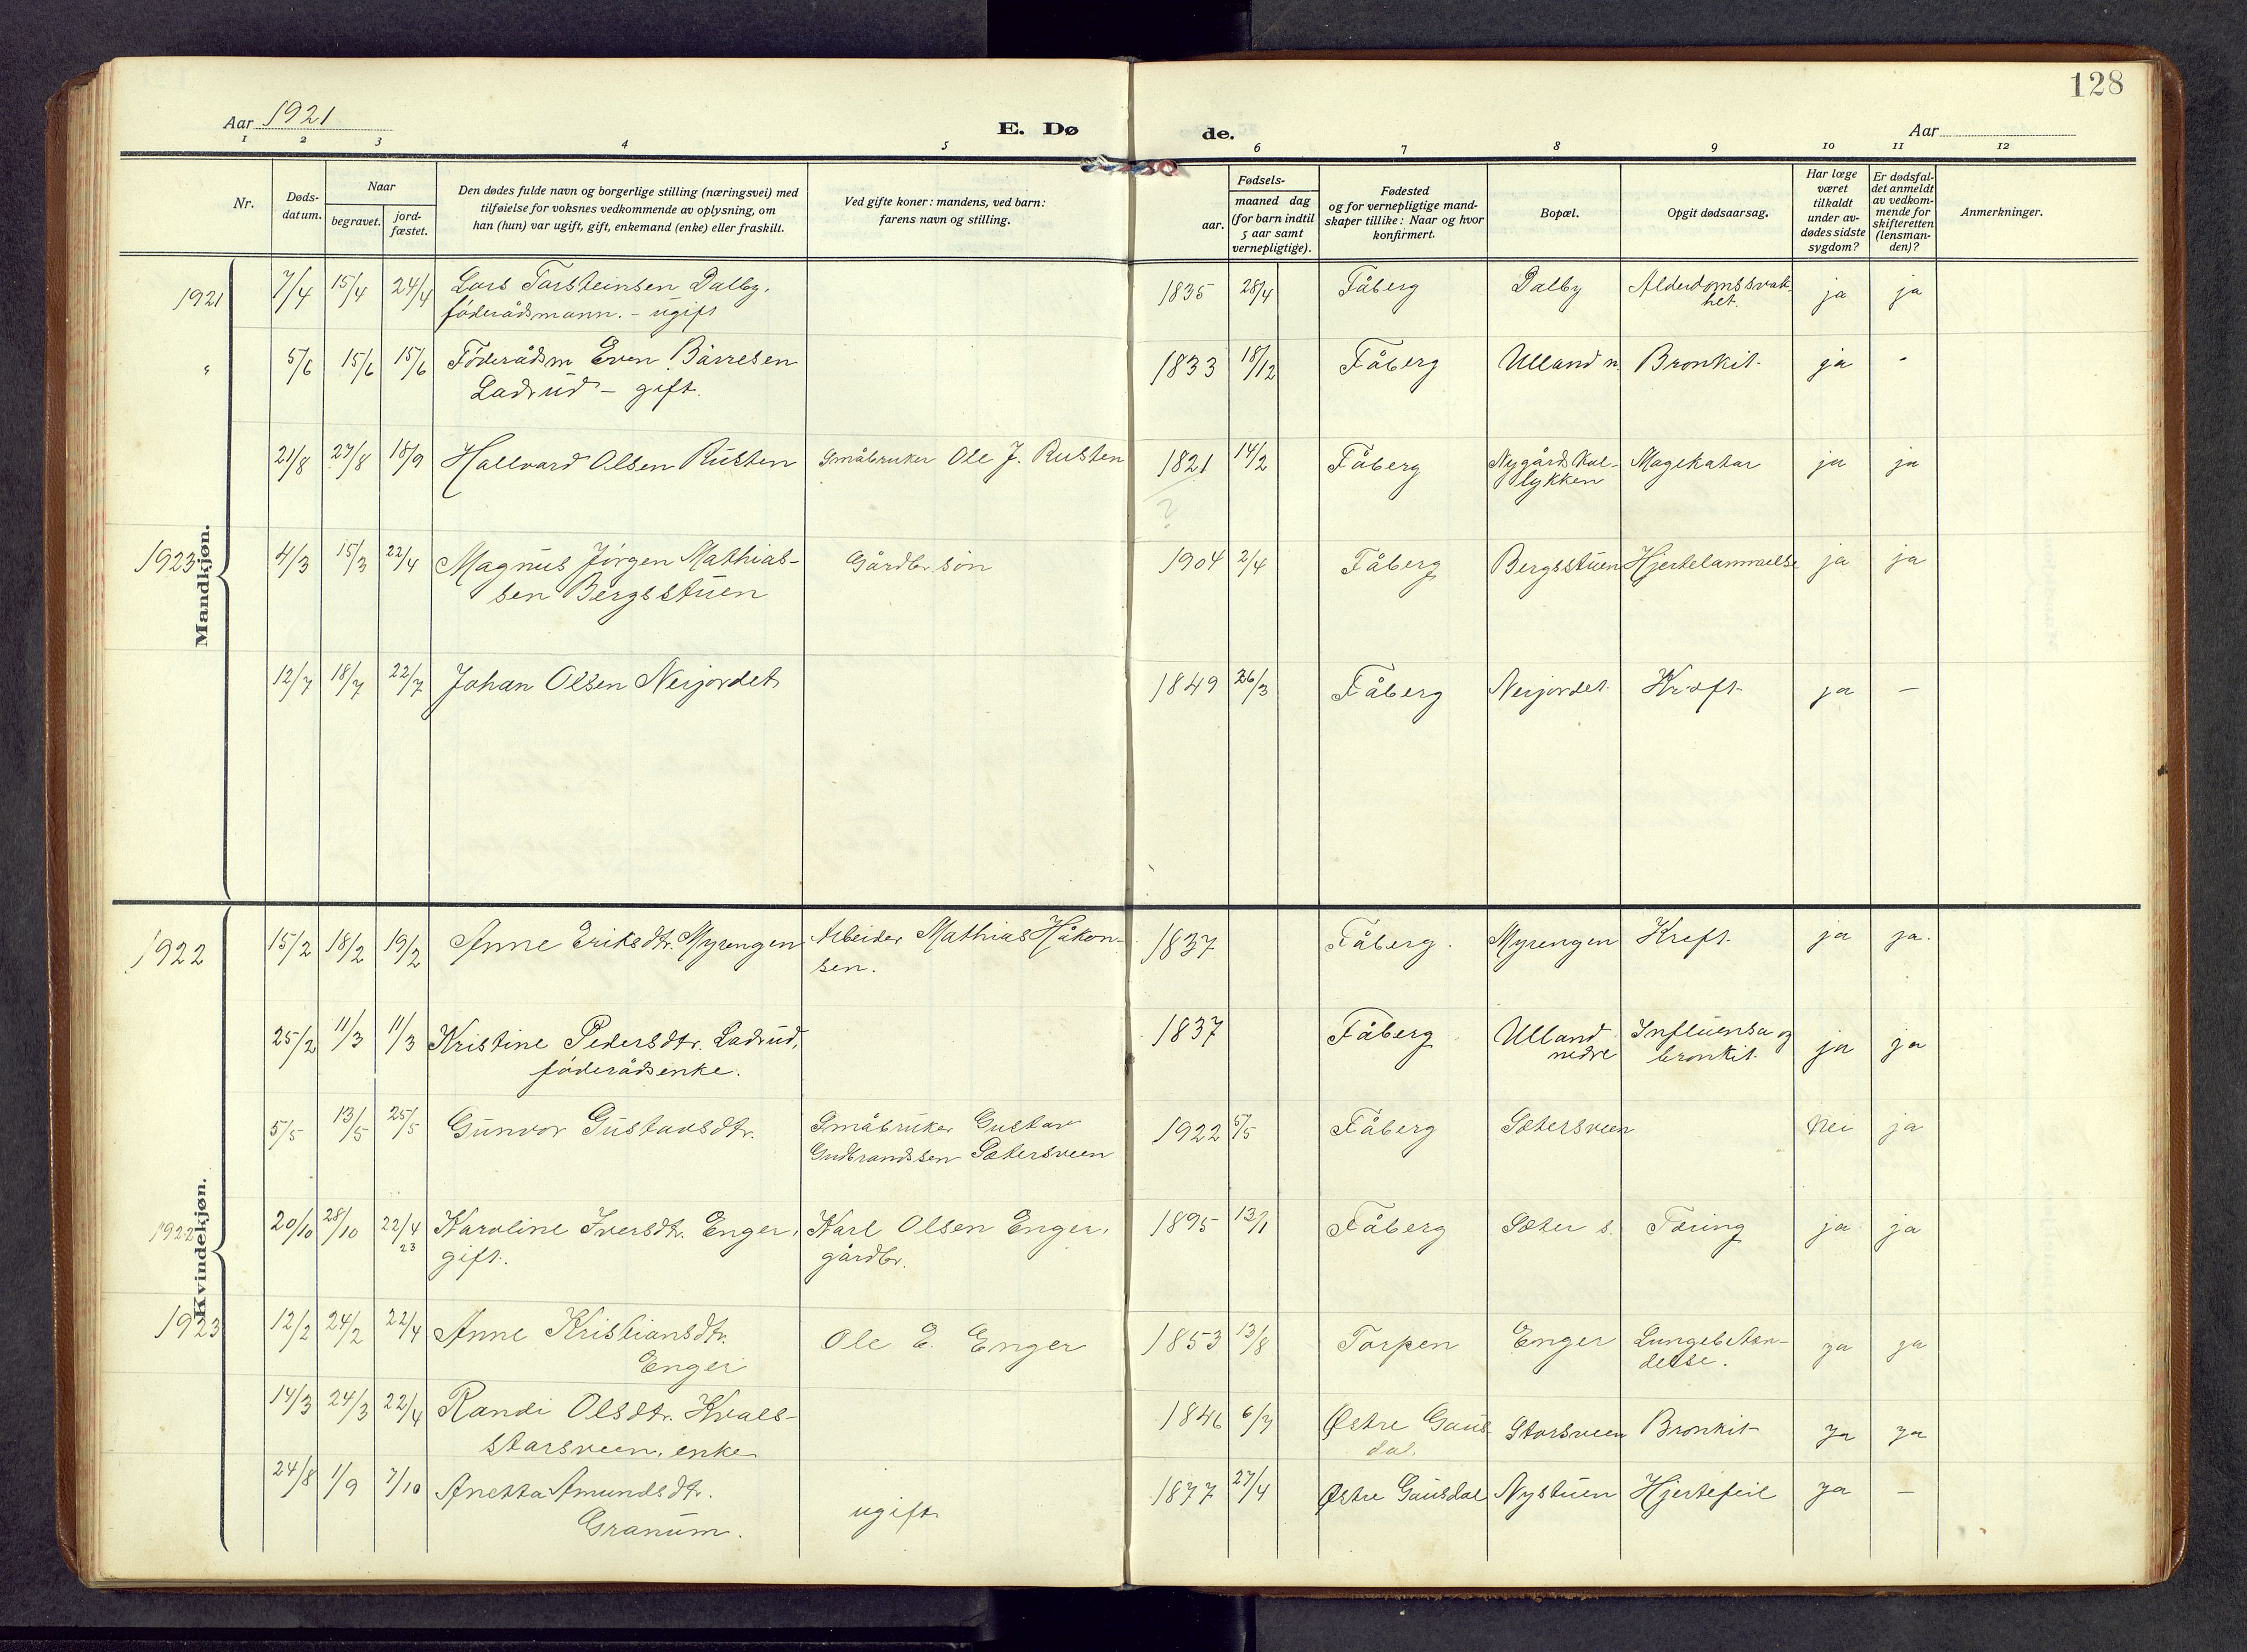 128
Aar 1921
E. Dø
de.
Aar
1 2 3 4 5 6 7 8 9 10 11 12
Nr.
Døds-
datum.
Naar
begravet.
jord-
fæstet.
Den dødes fulde navn og borgerlige stilling (næringsvei) med
tilføielse for voksnes vedkommende av oplysning, om
han (hun) var ugift, gift, enkemand (enke) eller fraskilt.
Ved gifte koner: mandens, ved barn:
farens navn og stilling.
Fødsels-
aar.
maaned dag
(for barn indtil
5 aar samt
vernepligtige).
Fødested
og for vernepligtige mand-
skaper tillike: Naar og hvor
konfirmert.
Bopæl.
Opgit dødsaarsag.
Har læge
været
tilkaldt
under av-
dødes sidste
sygdom?
Er dødsfal-
det anmeldt
av vedkom-
mende for
skifteretten
(lensman-
den)?
Anmerkninger.
Mandkjøn.
1921 7/4 15/4 24/4 Lars Torsteinsen Dalby, 1835 28/4 Fåberg Dalby Alderdomssvak- ja ja
føderådsmann. - ugift het.
" 5/6 15/6 15/6 Føderådsm Even Bårresen 1833 18/12 Fåberg Ulland n. Bronkit. ja -
Ladrud - gift.
21/8 27/8 18/9 Hallvard Olsen Rusten Småbruker Ole J. Rusten 1821 14/2 Fåberg Nygårds Magekatar ja ja
lykken
?
1923 4/3 15/3 22/4 Magnus Jörgen Mathias- Gårdbr. søn 1904 2/4 Fåberg Bergsstuen Hjertelammelse ja ja
sen Bergsstuen
12/7 18/7 22/7 Johan Olsen Nerjordet 1849 26/3 Fåberg Nerjordet Kræft ja -
Kvindekjøn.
1922 15/2 18/2 19/2 Anne Eriksdtr. Myrengen Arbeider Mathias Håkon- 1837 Fåberg. Myrengen Kreft. ja ja.
sen.
25/2 11/3 11/3 Kristine Pedersdtr. Ladrud, 1837 Fåberg Ulland Influensa og ja ja
føderådsenke. nedre bronkit.
5/5 13/5 25/5 Gunvor Gustavsdtr. Småbruker Gustav 1922 5/5 Fåberg Sætersveen Nei ja
Gudbrandssen Sætersveen
1922 20/10 28/10 22/4 Karoline Iversdtr. Enger, Karl Olsen Enger, 1895 13/1 Fåberg Sæter s. Tæring ja ja
23 gift. gårdbr.
1923 12/2 24/2 22/4 Anne Kristiansdtr. Ole E. Enger 1853 13/8 Torpen Enger Lungebetæn- ja ja
Enger delse.
14/3 24/3 22/4 Randi Olsdtr. Kvals- 1846 6/7 Østre Gaus- Storsveen Bronkit ja ja
storsveen, enke dal.
24/8 1/9 7/10 Anetta Amundsdtr. ugift 1877 27/4 Østre Gausdal Nystuen Hjertefeil ja -
Granum.